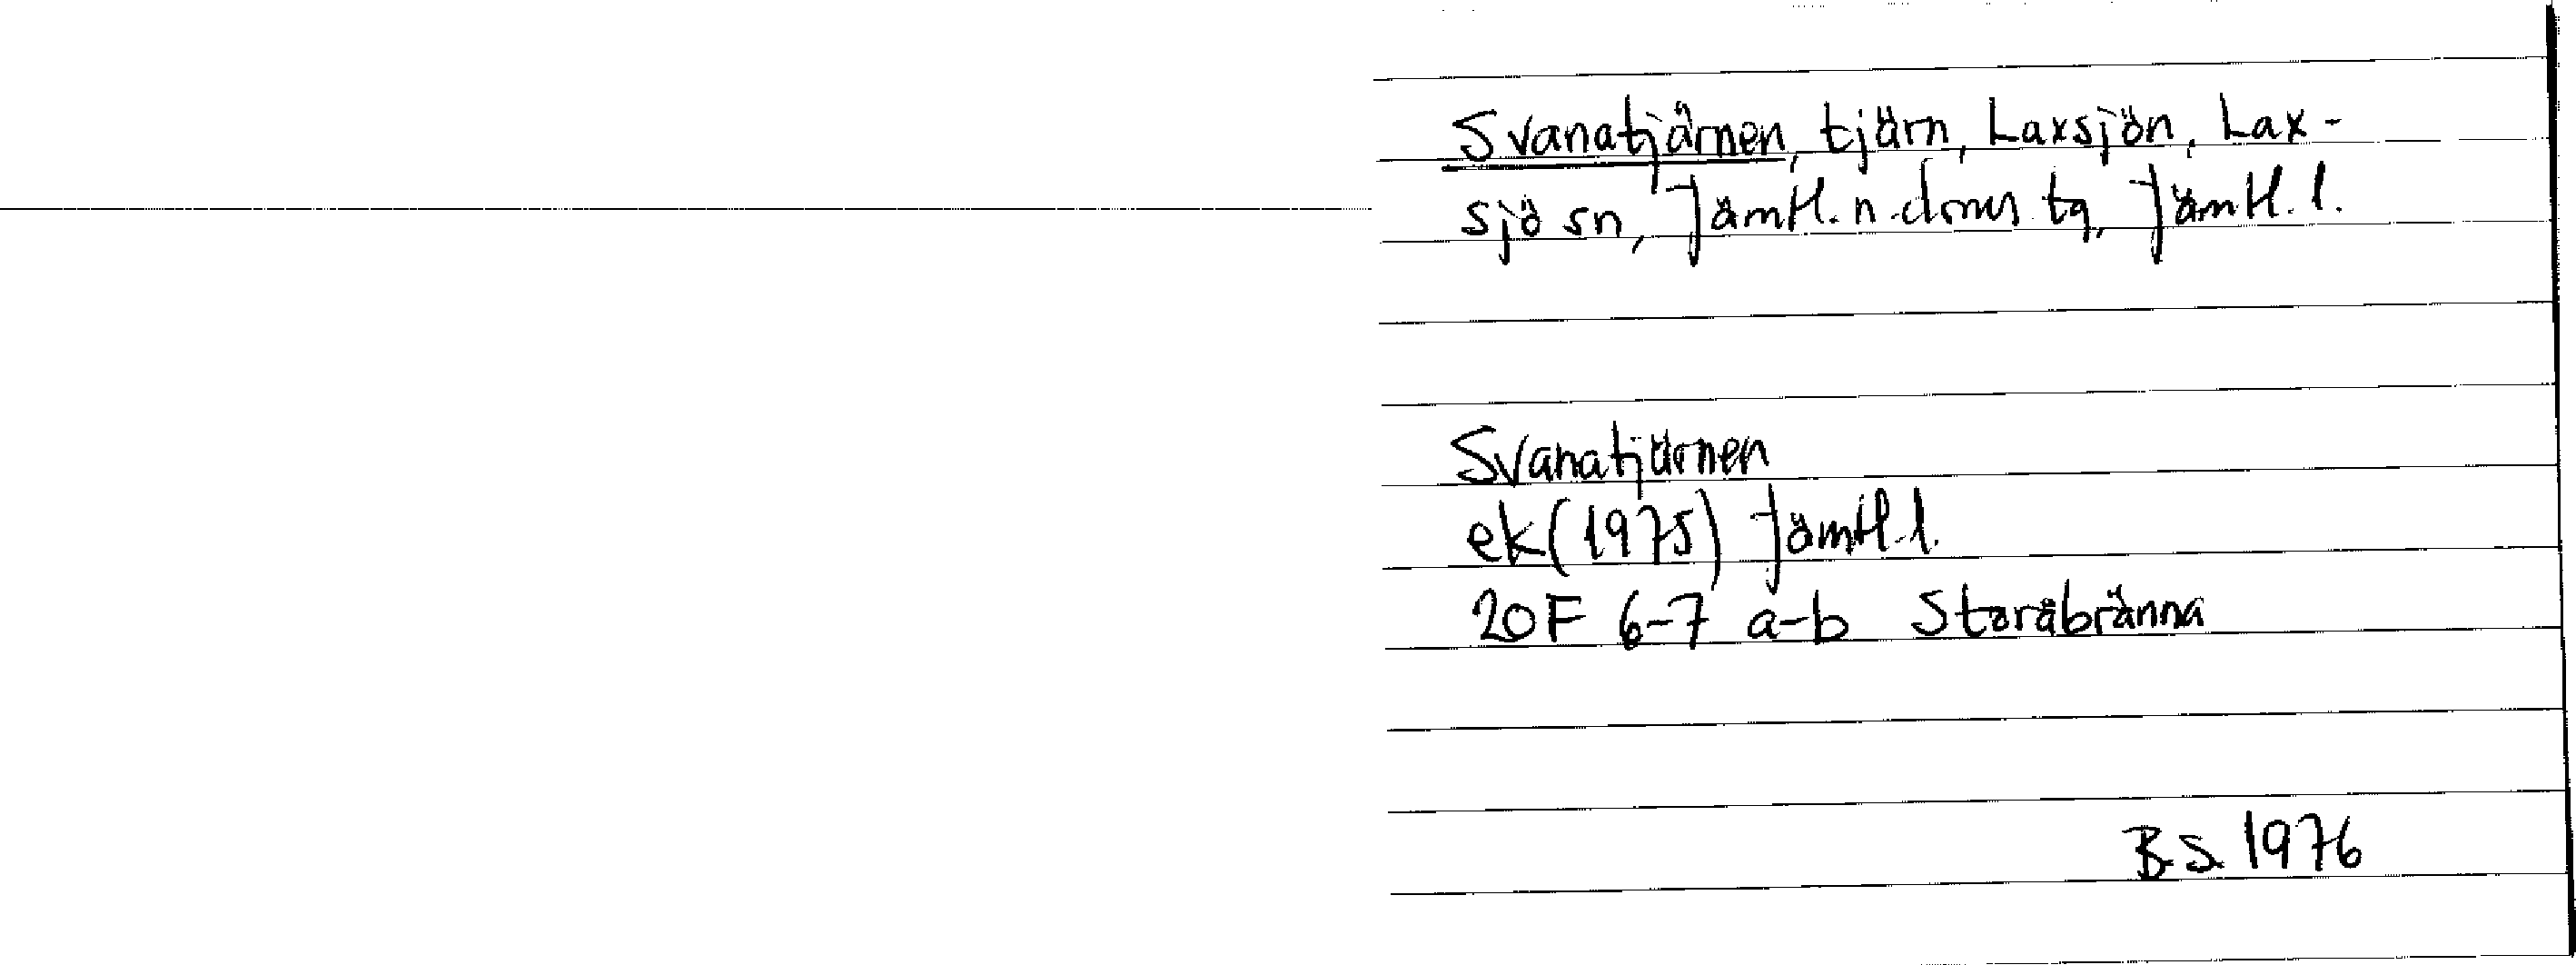 Svanatjärnen, tjärn, Laxsjön, Lax-
sjö sn, Jämtl. n. doms tg, Jämtl. l.
Svanatjärnen
ek (1975) Jämtl. l.
20F 6-7 a-b Storåbränna
B S 1976